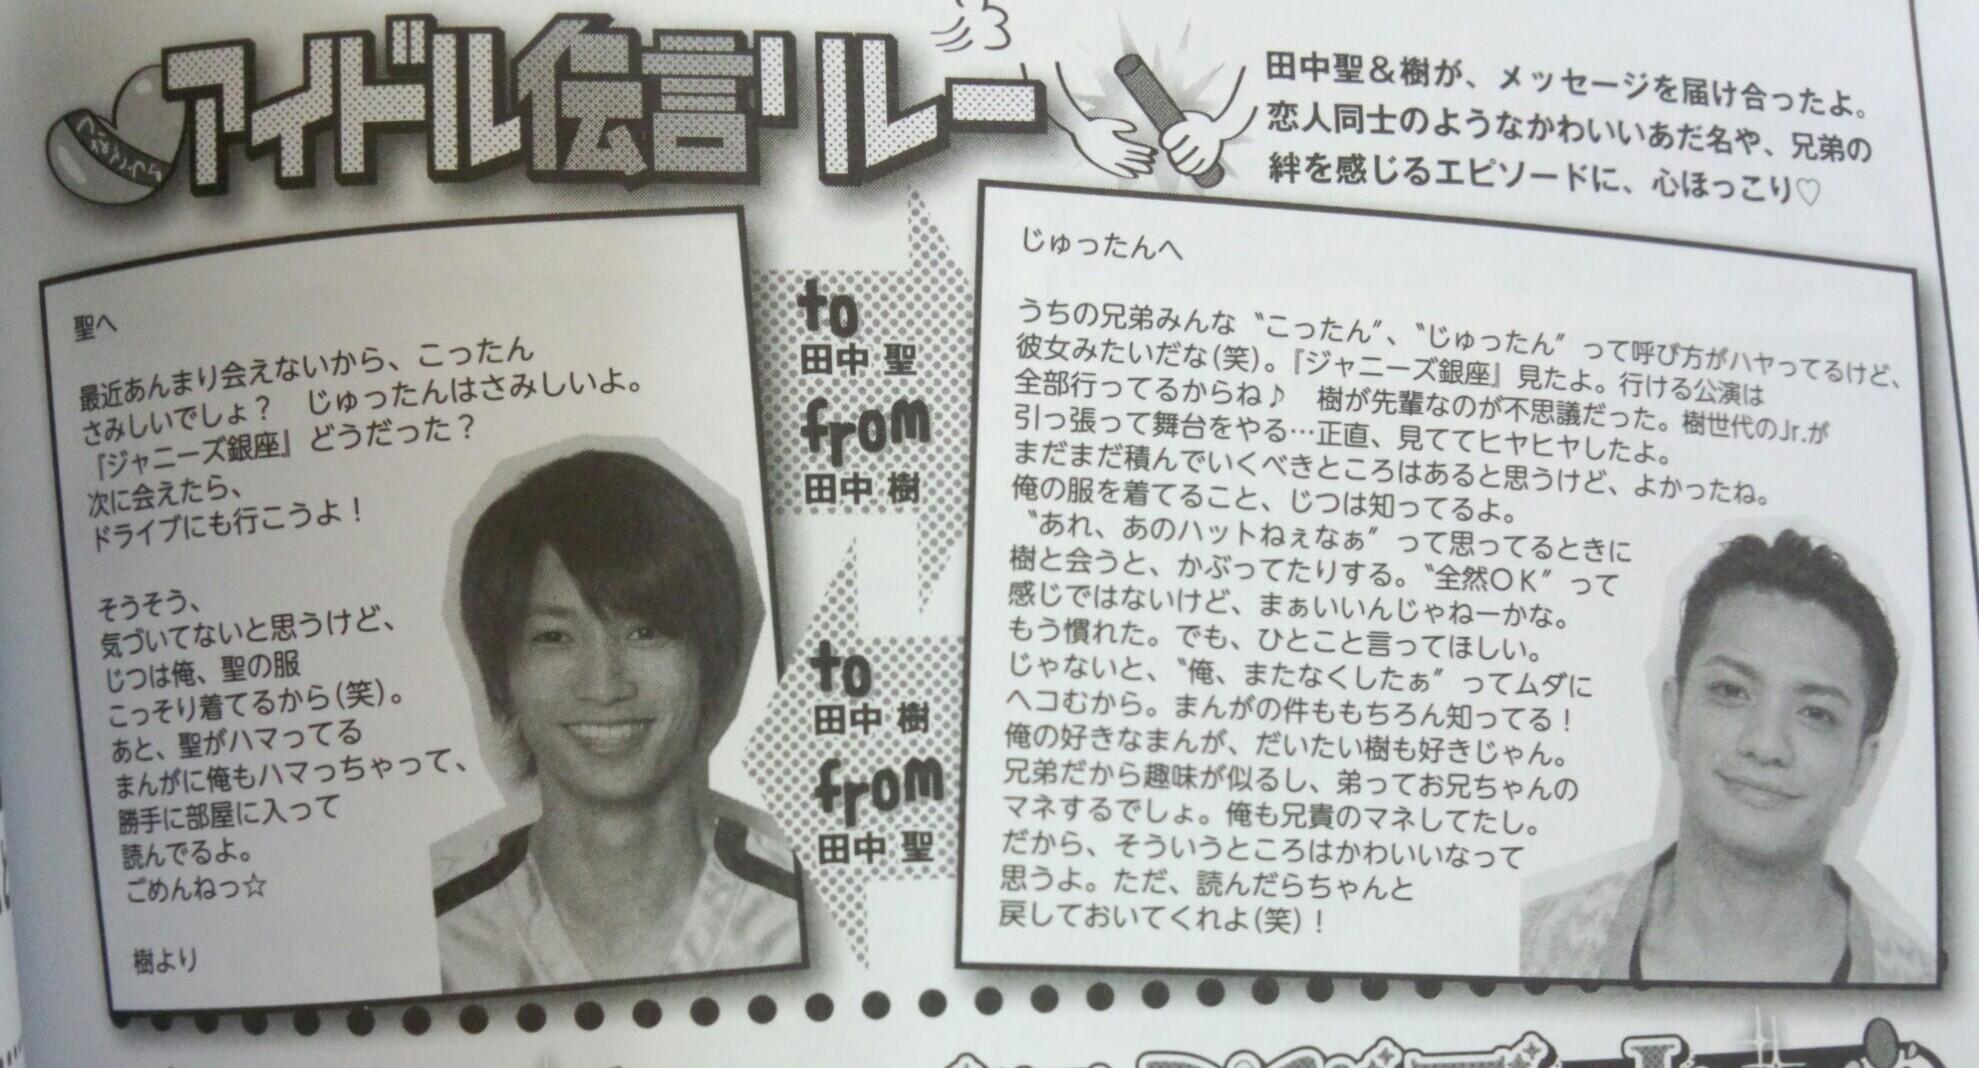 アイドル伝言リレー
田中聖＆樹が、メッセージを届け合ったよ。
恋人同士のようなかわいいあだ名や、兄弟の
絆を感じるエピソードに、心ほっこり♡
聖へ
最近あんまり会えないから、こったん
さみしいでしょ？　じゅったんはさみしいよ。
『ジャニーズ銀座』どうだった？
次に会えたら、
ドライブにも行こうよ！
そうそう、
気づいてないと思うけど、
じつは俺、聖の服
こっそり着てるから(笑)。
あと、聖がハマってる
まんがに俺もハマっちゃって、
勝手に部屋に入って
読んでるよ。
ごめんねっ☆
樹より
to
田中 聖
from
田中 樹
to
田中 樹
from
田中 聖
じゅったんへ
うちの兄弟みんな〝こったん〟、〝じゅったん〟って呼び方がハヤってるけど、
彼女みたいだな(笑)。『ジャニーズ銀座』見たよ。行ける公演は
全部行ってるからね♪　樹が先輩なのが不思議だった。樹世代のJr.が
引っ張って舞台をやる…正直、見ててヒヤヒヤしたよ。
まだまだ積んでいくべきところはあると思うけど、よかったね。
俺の服を着てること、じつは知ってるよ。
〝あれ、あのハットねぇなぁ〟って思ってるときに
樹と会うと、かぶってたりする。〝全然ＯＫ〟って
感じではないけど、まぁいいんじゃねーかな。
もう慣れた。でも、ひとこと言ってほしい。
じゃないと、〝俺、またなくしたぁ〟ってムダに
ヘコむから。まんがの件ももちろん知ってる！
俺の好きなまんが、だいたい樹も好きじゃん。
兄弟だから趣味が似るし、弟ってお兄ちゃんの
マネするでしょ。俺も兄貴のマネしてたし。
だから、そういうところはかわいいなって
思うよ。ただ、読んだらちゃんと
戻しておいてくれよ(笑)！